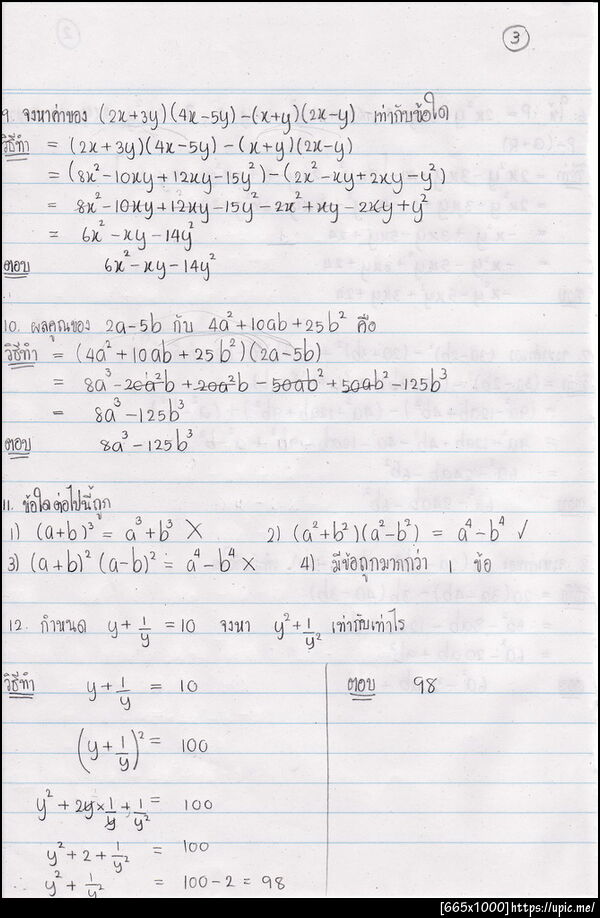 3
9. จงหาค่าของ (2x+3y)(4x-5y)-(x+y)(2x-y) เท่ากับข้อใด
วิธีทำ = (2x+3y)(4x-5y)-(x+y)(2x-y)
= (8x²-10xy+12xy-15y²)-(2x²-xy+2xy-y²)
= 8x²-10xy+12xy-15y²-2x²+xy-2xy+y²
= 6x²-xy-14y²
ตอบ 6x²-xy-14y²
10. ผลคูณของ 2a-5b กับ 4a²+10ab+25b² คือ
วิธีทำ = (4a²+10ab+25b²)(2a-5b)
= 8a³-20a²b+20a²b-50ab²+50ab²-125b³
= 8a³-125b³
ตอบ 8a³-125b³
11. ข้อใดต่อไปนี้ถูก
1) (a+b)³ = a³+b³ X 2) (a²+b²)(a²-b²) = a⁴-b⁴ ✓
3) (a+b)²(a-b)² = a⁴-b⁴ X 4) มีข้อถูกมากกว่า 1 ข้อ
12. กำหนด y+1/y=10 จงหา y²+1/y² เท่ากับเท่าไร
วิธีทำ y+1/y = 10
(y+1/y)² = 100
y²+2y×1/y+1/y² = 100
y²+2+1/y² = 100
y²+1/y² = 100-2 = 98
ตอบ 98
[665x1000]https://upic.me/